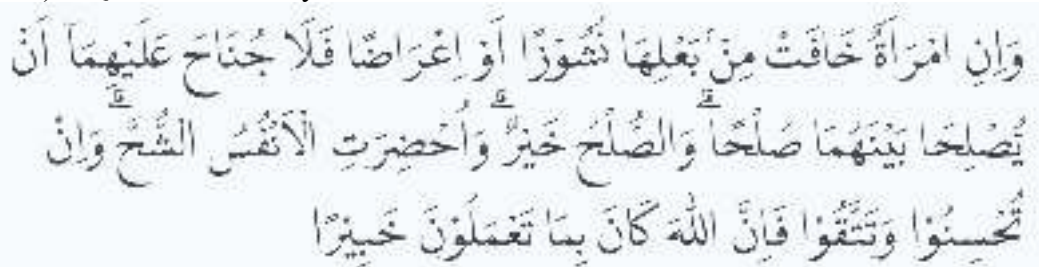 وَاِنِ امْرَاَةٌ خَافَتْ مِنْۢ بَعْلِهَا نُشُوْزًا اَوْ اِعْرَاضًا فَلَا جُنَاحَ عَلَيْهِمَآ اَنْ
يُّصْلِحَا بَيْنَهُمَا صُلْحًا ۗوَالصُّلْحُ خَيْرٌ ۗوَاُحْضِرَتِ الْاَنْفُسُ الشُّحَّ ۗوَاِنْ
تُحْسِنُوْا وَتَتَّقُوْا فَاِنَّ اللّٰهَ كَانَ بِمَا تَعْمَلُوْنَ خَبِيْرًا